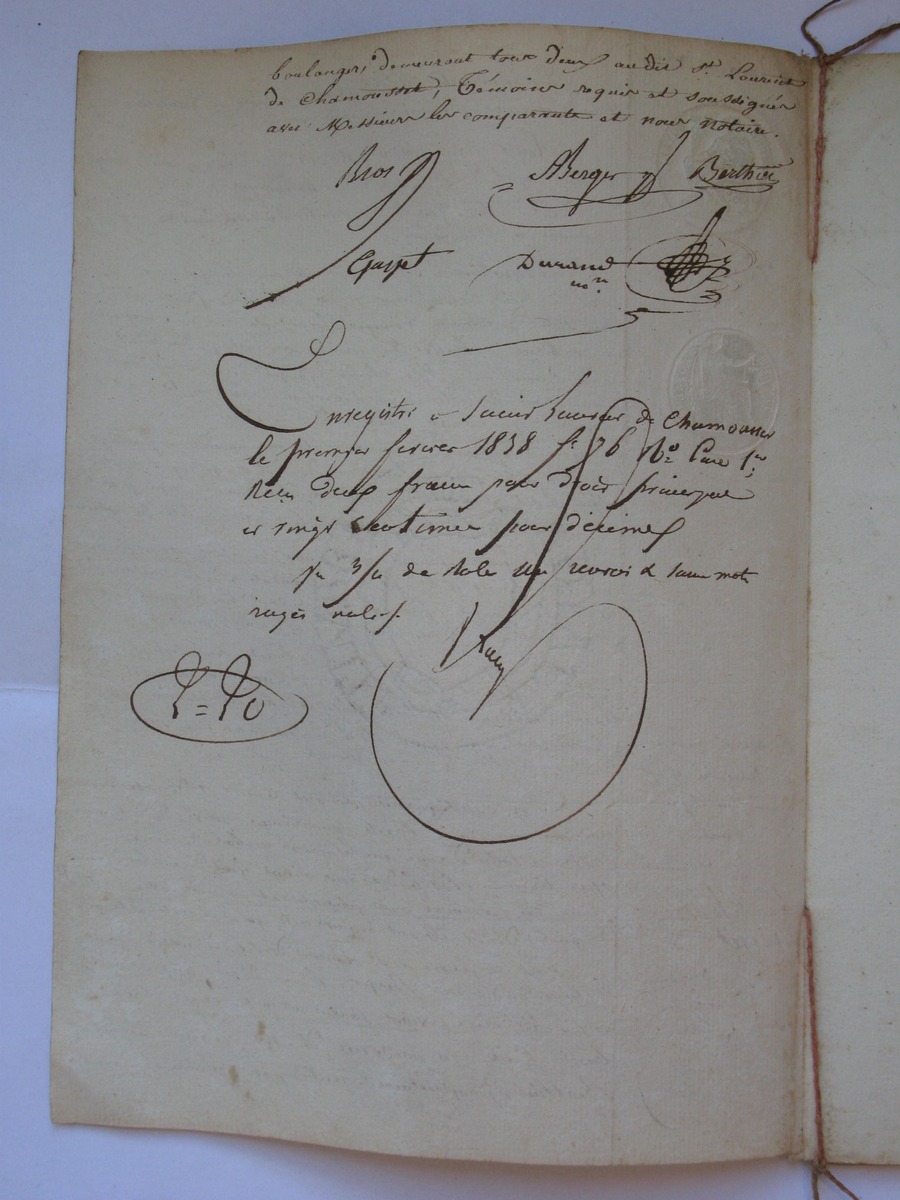 boulangers demeurant tous deux audit St. Laurent
de Chamousset, Témoins requis et soussignés
avec Messieurs les comparants et nous notaire.
Bros ABerger Berthier
Gayet Durand
nre.
Enregistré à Saint Laurent de Chamousset
le premier fevrier 1838 fo 36 Vo Case 1re
Reçu deux francs pour droit principal
et vingt centimes pour décimes
de Role un renvoi & mots
rayés nuls.
2=20